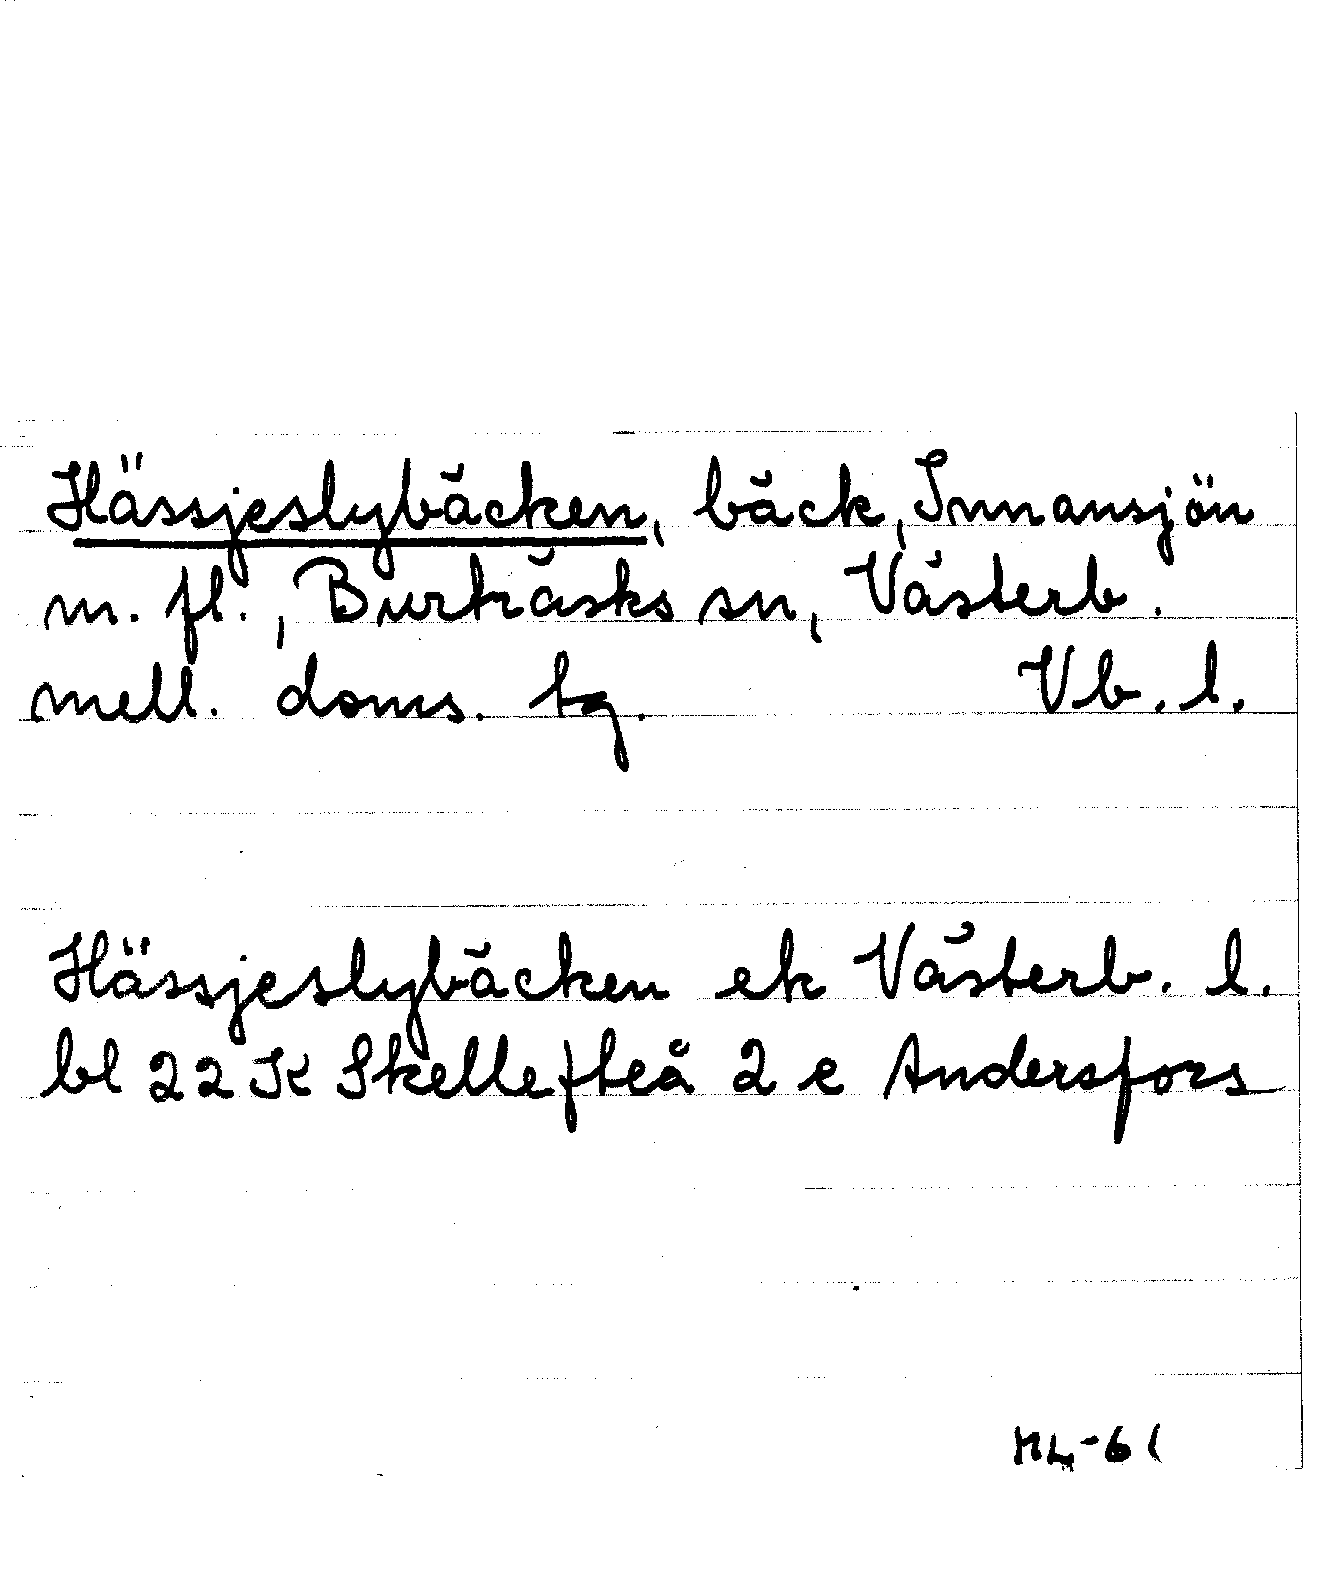 Hässjeslybäcken, bäck, Innansjön
m. fl., Burträsks sn, Västerb.
mell. doms. tg. Vb. l.
Hässjeslybäcken ek Västerb. l.
bl 22 K Skellefteå 2 e Andersfors
ML-61